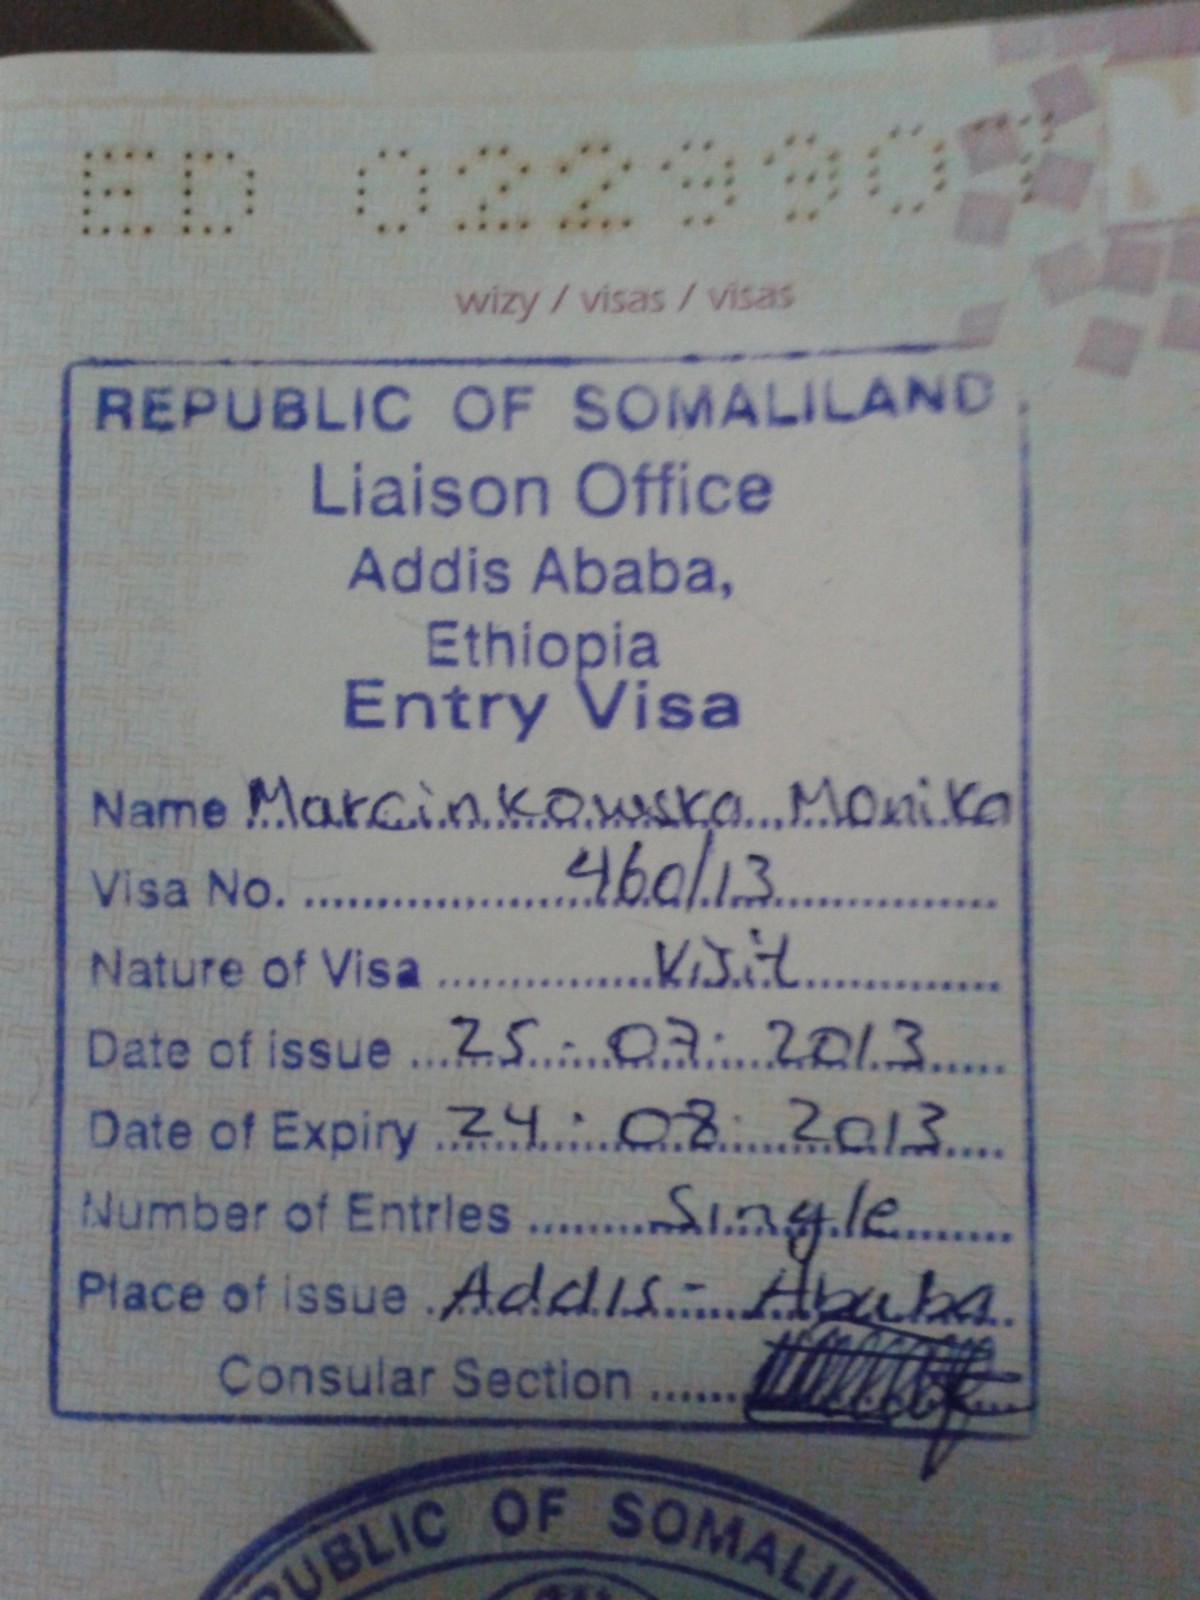 ED 0229901
wizy / visas / visas
REPUBLIC OF SOMALILAND
Liaison Office
Addis Ababa,
Ethiopia
Entry Visa
Name Marcinkowska Monika
Visa No. 460/13
Nature of Visa Visit
Date of issue 25-07-2013
Date of Expiry 24.08.2013
Number of Entries Single
Place of issue Addis-Ababa
Consular Section
PUBLIC OF SOMALIL